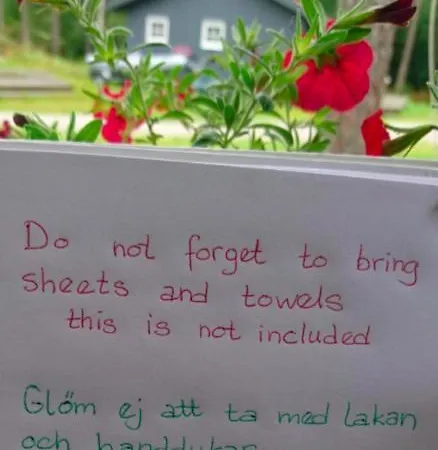 Do not forget to bring
sheets and towels
this is not included
Glöm ej att ta med lakan
och handdukar